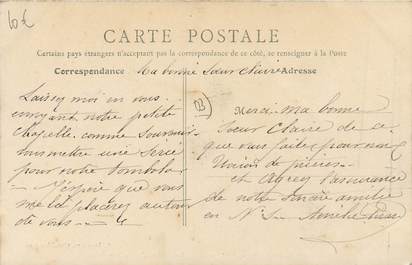 10€
CARTE POSTALE
Certains pays étrangers n'acceptant pas la correspondance de ce côté, se renseigner à la Poste
Correspondance Ma bonne Sœur Claire Adresse
Laissez moi en vous
envoyant notre petite
Chapelle comme Souvenir
vous mettre une Série
pour notre tombola
J'espère que vous
me la placerez autour
de vous
B
Merci ma bonne
Sœur Claire de ce
que vous faites pour nous
Union de prières
et Agréez l'assurance
de notre sincère amitié
en N. S.